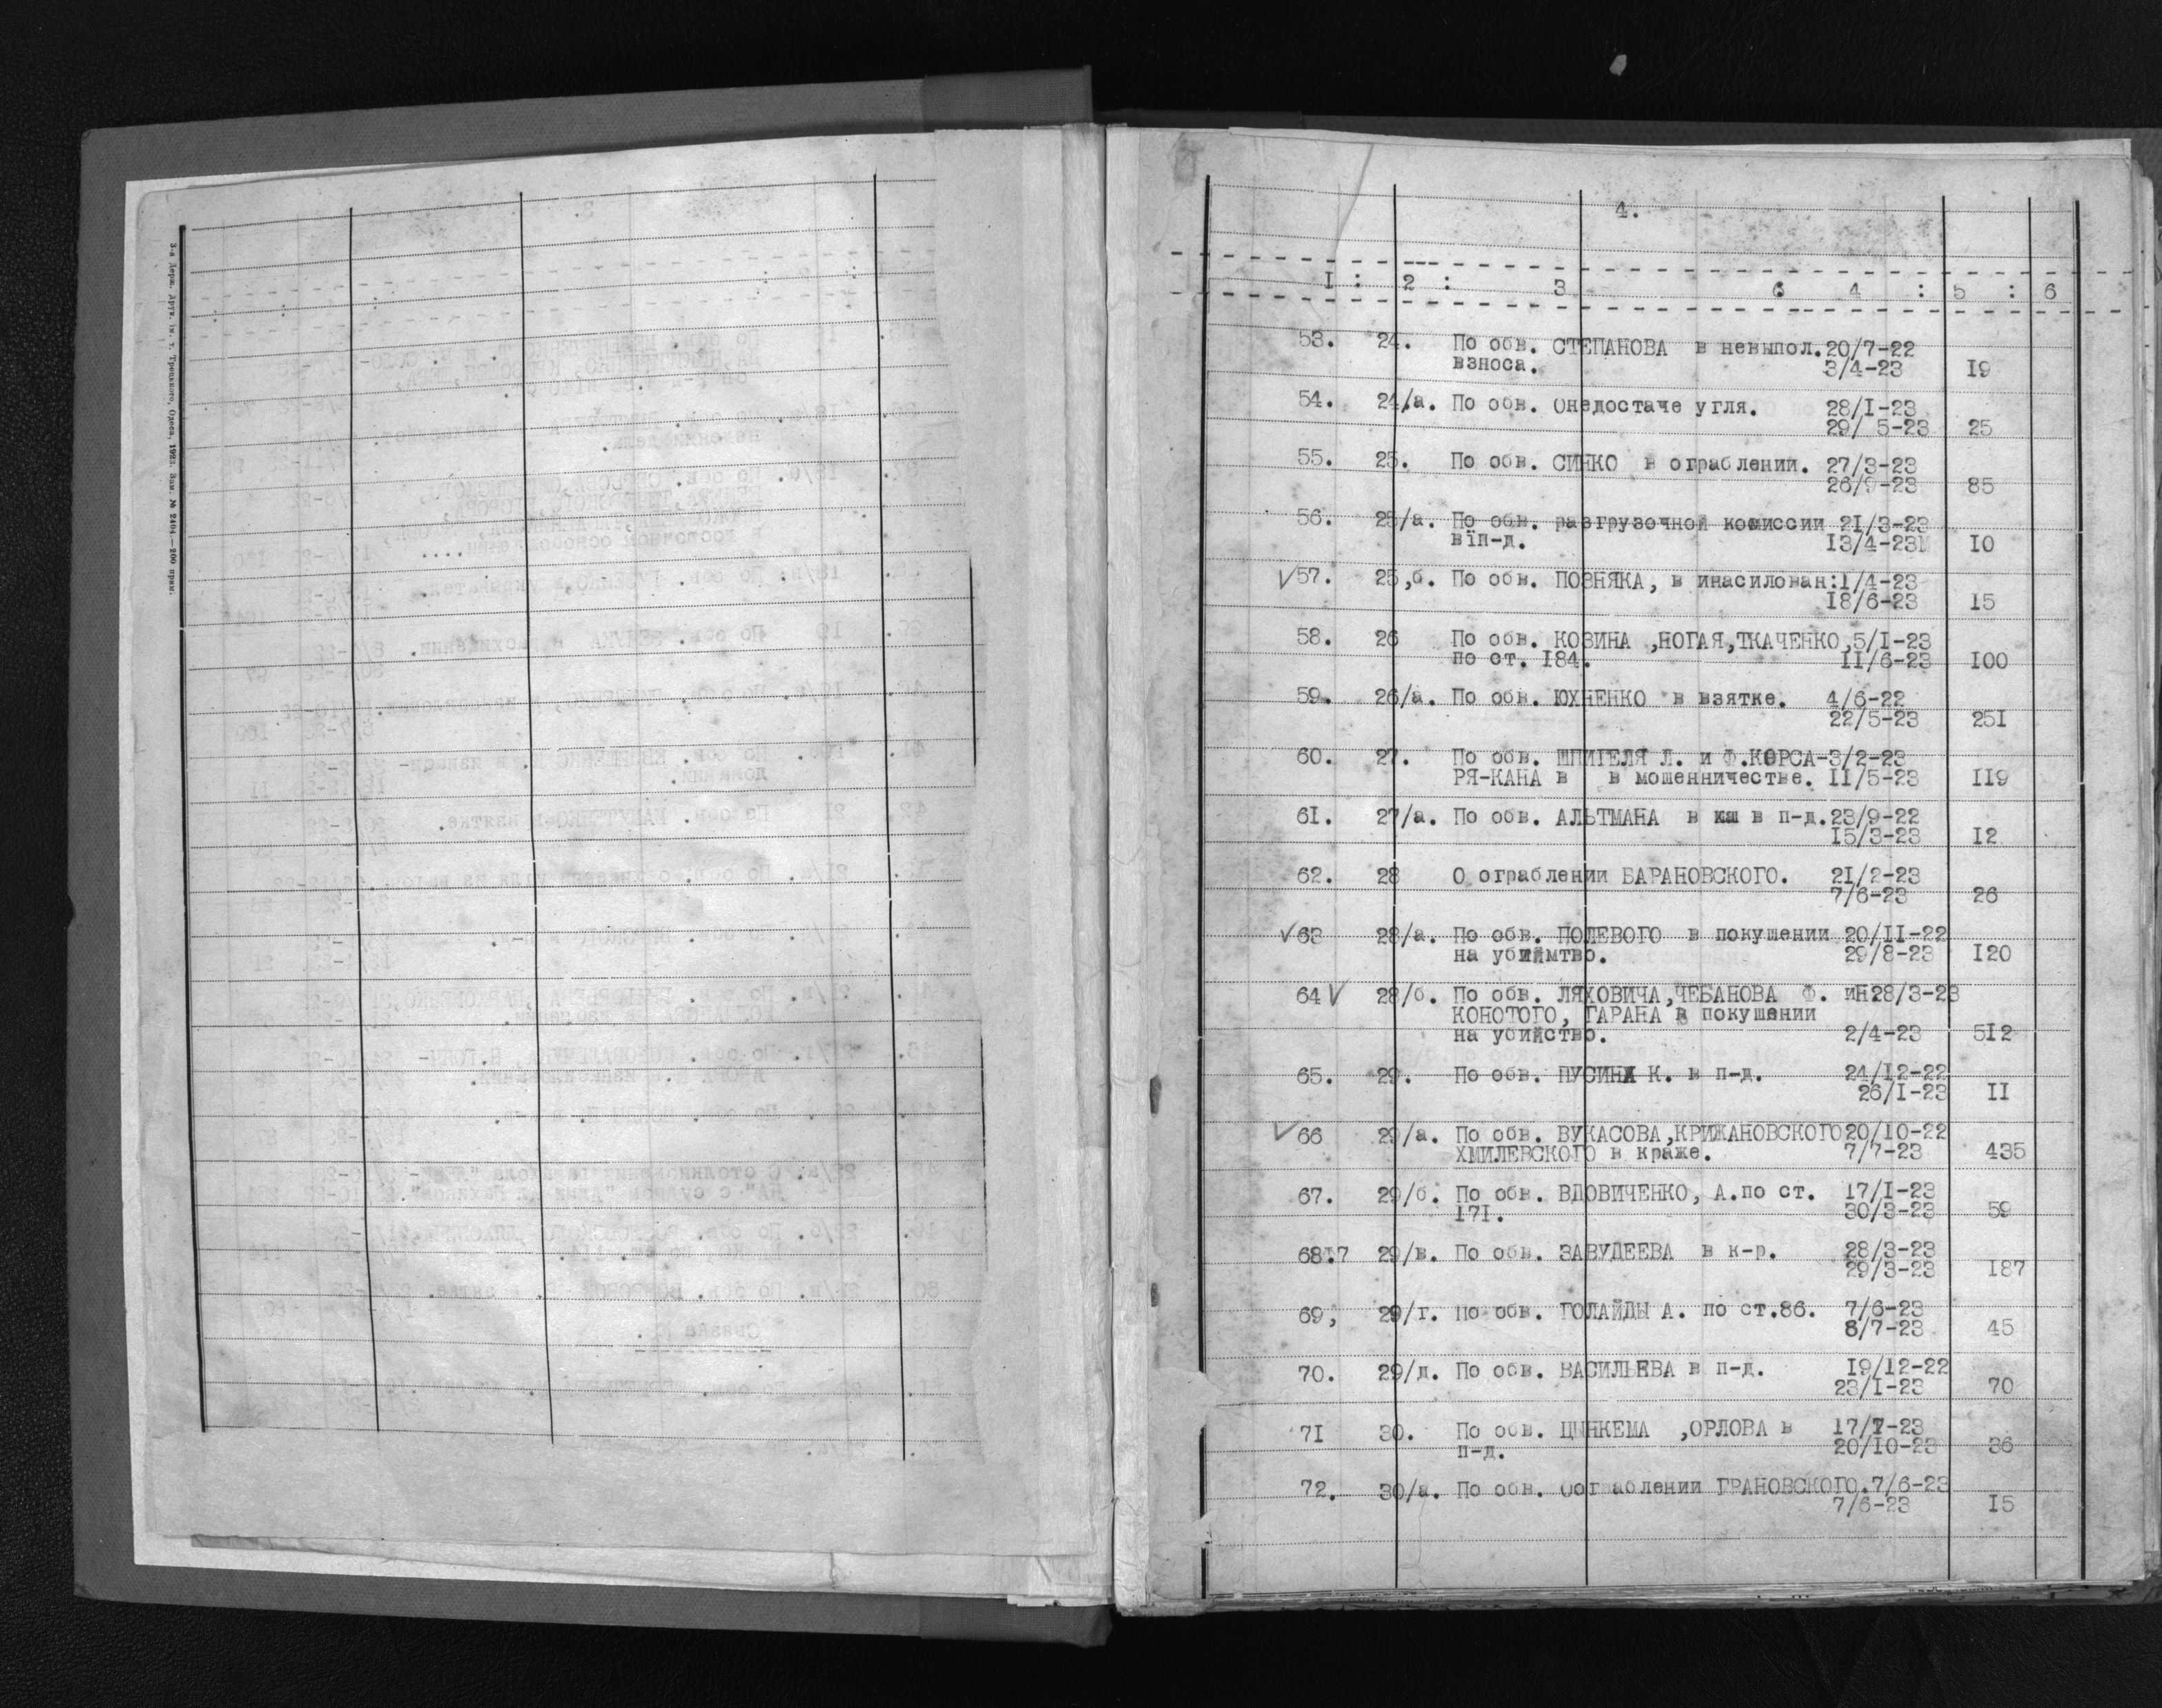 3-я Держ. Друк. ім. т. Троцького, Одеса, 1923. Зам. № 2404—200 прим.
4.
I : 2 : 3 6 4 : 5 : 6
53. 24. По обв. СТЕПАНОВА в невыпол.20/7-22
взноса. 3/4-23 I9
54. 24/.а. По обв. Онедостаче угля. 28/I-23
29/ 5-23 25
55. 25. По обв. СИНКО в ограблении. 27/3-23
26/9-23 85
56. 25/а. По обв. разгрузочной комиссии 2I/3-23
вїп-д. I3/4-23 I0
√57. 25,б. По обв. ПОЗНЯКА, в инасилован:1/4-23
I8/6-23 I5
58. 26 По обв. КОЗИНА ,НОГАЯ,ТКАЧЕНКО,5/I-23
по ст. I84. II/6-23 I00
59. 26/а. По обв. ЮХНЕНКО в взятке. 4/6-22
22/5-23 25I
60. 27. По обв. ШПИГЕЛЯ Л. и Ф.КОРСА-3/2-23
РЯ-КАНА в в мошенничестве. II/5-23 II9
6I. 27/а. По обв. АЛЬТМАНА в в п-д.23/9-22
I5/3-23 I2
62. 28 О ограблении БАРАНОВСКОГО. 2I/2-23
7/6-23 26
√63 28/а. По обв. ПОЛЕВОГО в покушении 20/II-22
на убиймтво. 29/8-23 I20
64√ 28/б. По обв. ЛЯХОВИЧА,ЧЕБАНОВА Ф. иН28/3-23
КОНОТОГО, ГАРАНА в покушении
на убийство. 2/4-23 5I2
65. 29. По обв. ПУСИНА К. в п-д. 24/I2-22
26/I-23 II
√66 29/а. По обв. ВУКАСОВА,КРИЖАНОВСКОГО20/I0-22
ХМИЛЕВСКОГО в краже. 7/7-23 435
67. 29/б. По обв. ВДОВИЧЕНКО, А.по ст. I7/I-23
I7I. 30/3-23 59
68.7 29/в. По обв. ЗАВУДЕЕВА в к-р. 28/3-23
29/3-23 I87
69, 29/г. По обв. ГОЛАЙДЫ А. по ст.86. 7/6-23
8/7-23 45
70. 29/д. По обв. ВАСИЛЬЕВА в п-д. I9/I2-22
23/I-23 70
7I 30. По обв. ЦЫНКЕМА ,ОРЛОВА в I7/7-23
п-д. 20/I0-23 36
72. 30/а. По обв. Оограблении ГРАНОВСКОГО.7/6-23
7/6-23 I5